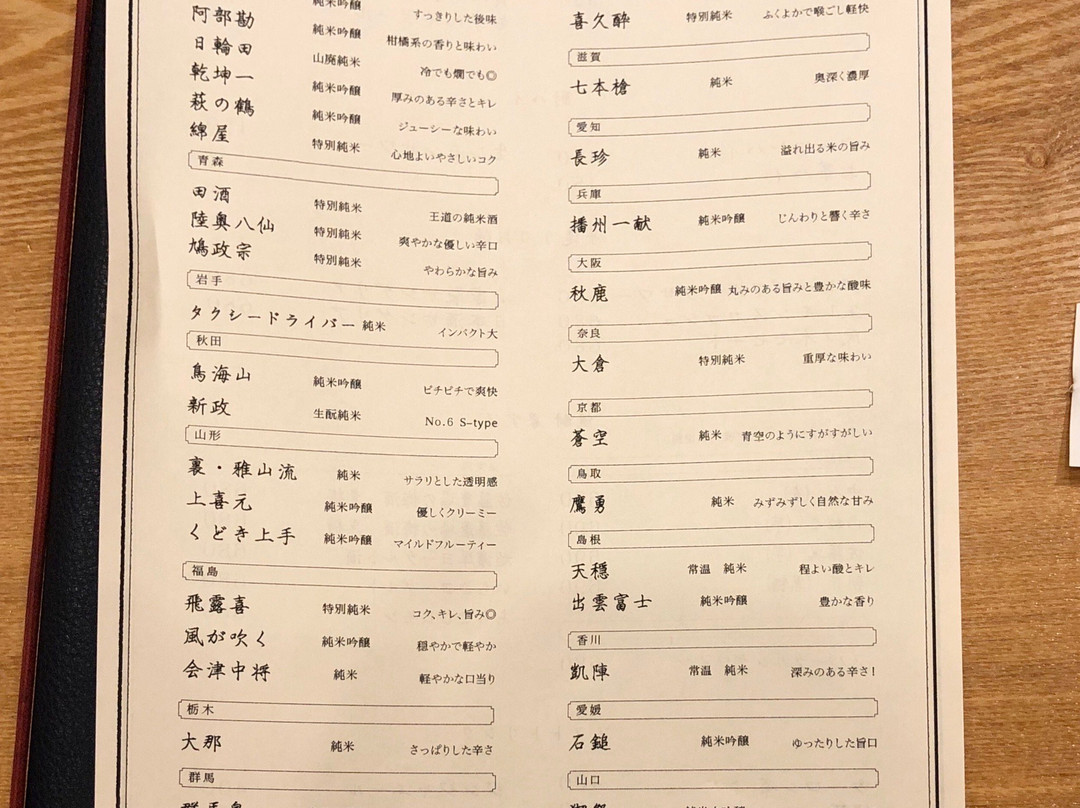 純米吟醸 すっきりした後味
阿部勘 純米吟醸 柑橘系の香りと味わい
日輪田 山廃純米 冷でも燗でも◎
乾坤一 純米吟醸 厚みのある辛さとキレ
萩の鶴 純米吟醸 ジューシーな味わい
綿屋 特別純米 心地よいやさしいコク
青森
田酒 特別純米 王道の純米酒
陸奥八仙 特別純米 爽やかな優しい辛口
鳩政宗 特別純米 やわらかな旨み
岩手
タクシードライバー 純米 インパクト大
秋田
鳥海山 純米吟醸 ピチピチで爽快
新政 生酛純米 No.6 S-type
山形
裏・雅山流 純米 サラリとした透明感
上喜元 純米吟醸 優しくクリーミー
くどき上手 純米吟醸 マイルドフルーティー
福島
飛露喜 特別純米 コク、キレ、旨み◎
風が吹く 純米吟醸 穏やかで軽やか
会津中将 純米 軽やかな口当り
栃木
大那 純米 さっぱりした辛さ
群馬
喜久酔 特別純米 ふくよかで喉ごし軽快
滋賀
七本槍 純米 奥深く濃厚
愛知
長珍 純米 溢れ出る米の旨み
兵庫
播州一献 純米吟醸 じんわりと響く辛さ
大阪
秋鹿 純米吟醸 丸みのある旨みと豊かな酸味
奈良
大倉 特別純米 重厚な味わい
京都
蒼空 純米 青空のようにすがすがしい
鳥取
鷹勇 純米 みずみずしく自然な甘み
島根
天穏 常温 純米 程よい酸とキレ
出雲富士 純米吟醸 豊かな香り
香川
凱陣 常温 純米 深みのある辛さ!
愛媛
石鎚 純米吟醸 ゆったりした旨口
山口